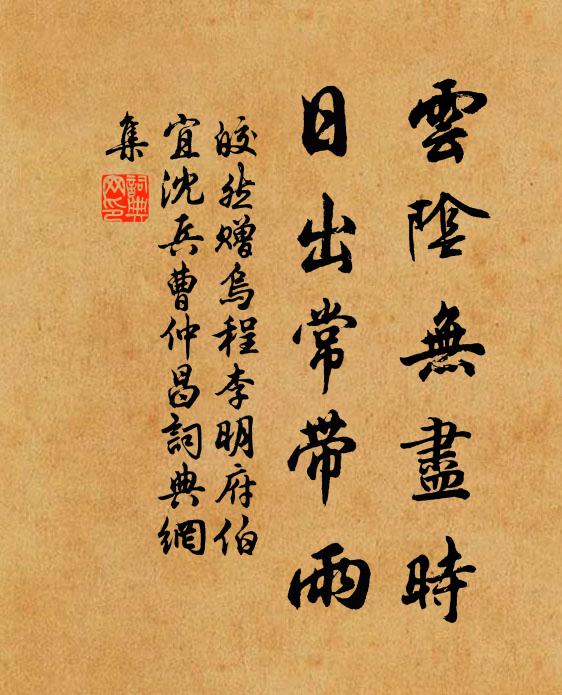 雲陰無盡時
日出常帶雨
皎然赠烏程李明府伯
宜沈兵曹仲昌詞典網
集
詞典网印